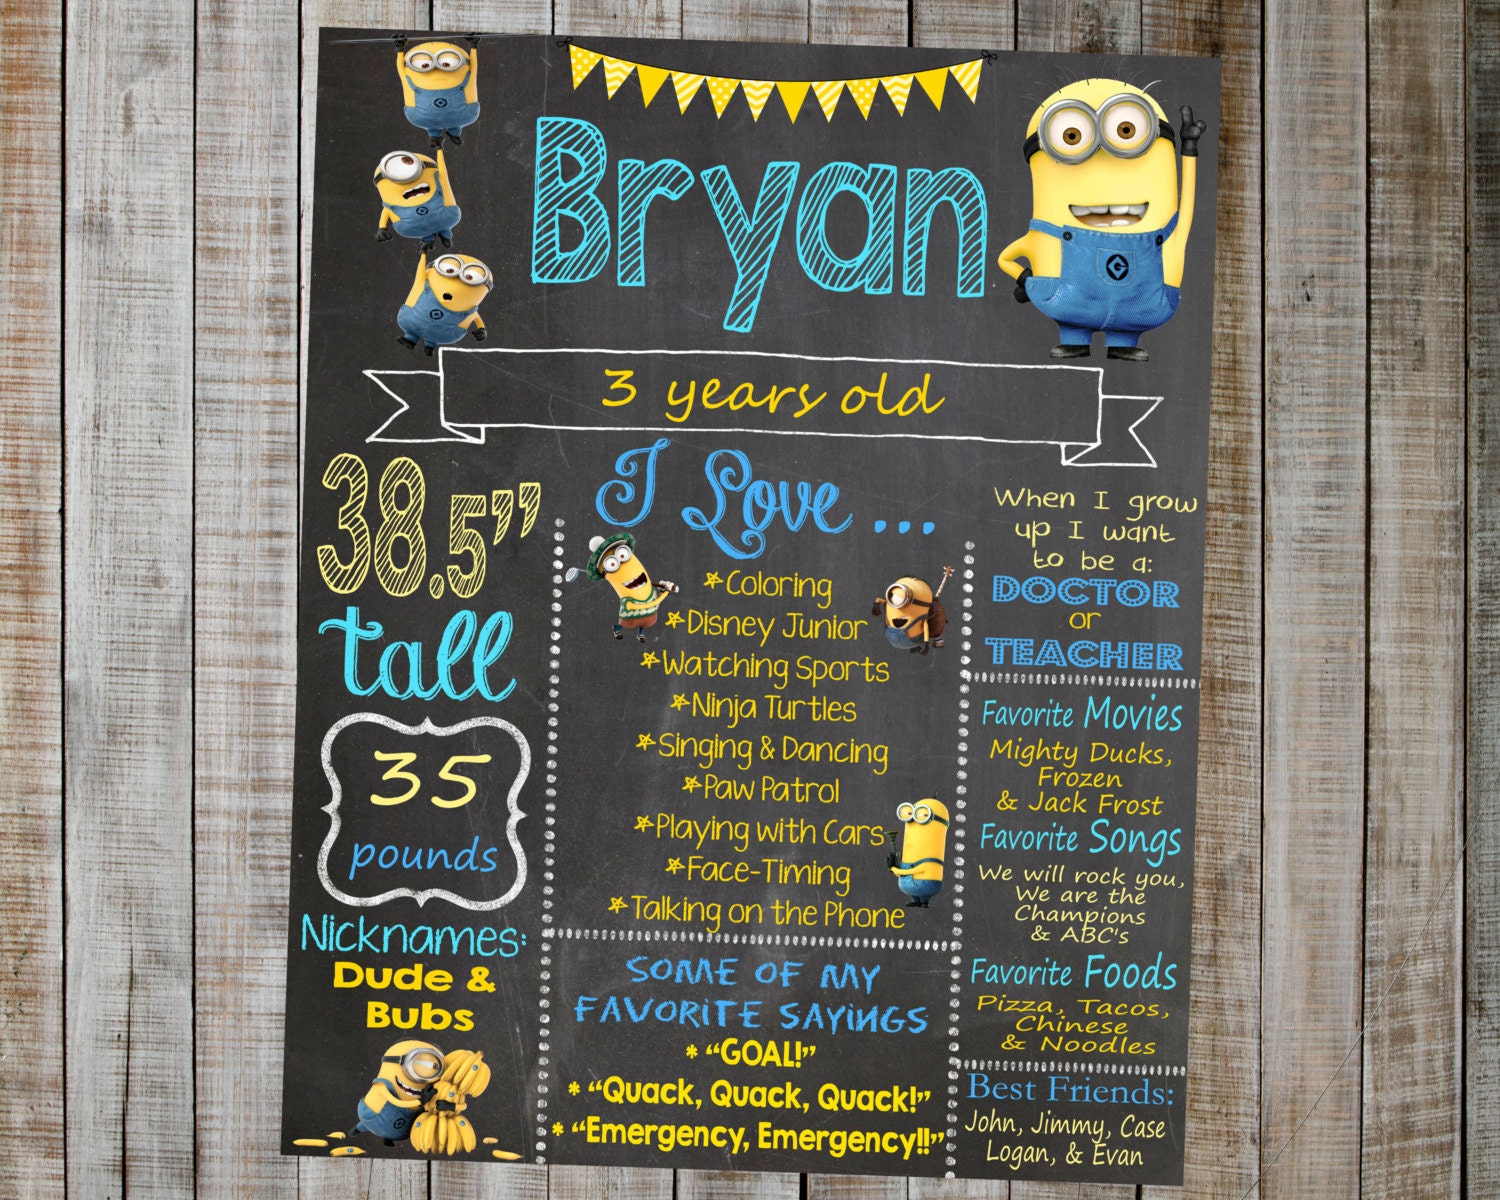 Bryan
3 years old
38.5”
tall
35
pounds
Nicknames:
Dude &
Bubs
I Love ...
*Coloring
*Disney Junior
*Watching Sports
*Ninja Turtles
*Singing & Dancing
*Paw Patrol
*Playing with Cars
*Face-Timing
*Talking on the Phone
SOME OF MY
FAVORITE SAYINGS
* “GOAL!”
* “Quack, Quack, Quack!”
* “Emergency, Emergency!!”
When I grow
up I want
to be a:
DOCTOR
or
TEACHER
Favorite Movies
Mighty Ducks,
Frozen
& Jack Frost
Favorite Songs
We will rock you,
We are the
Champions
& ABC's
Favorite Foods
Pizza, Tacos,
Chinese
& Noodles
Best Friends:
John, Jimmy, Case
Logan, & Evan